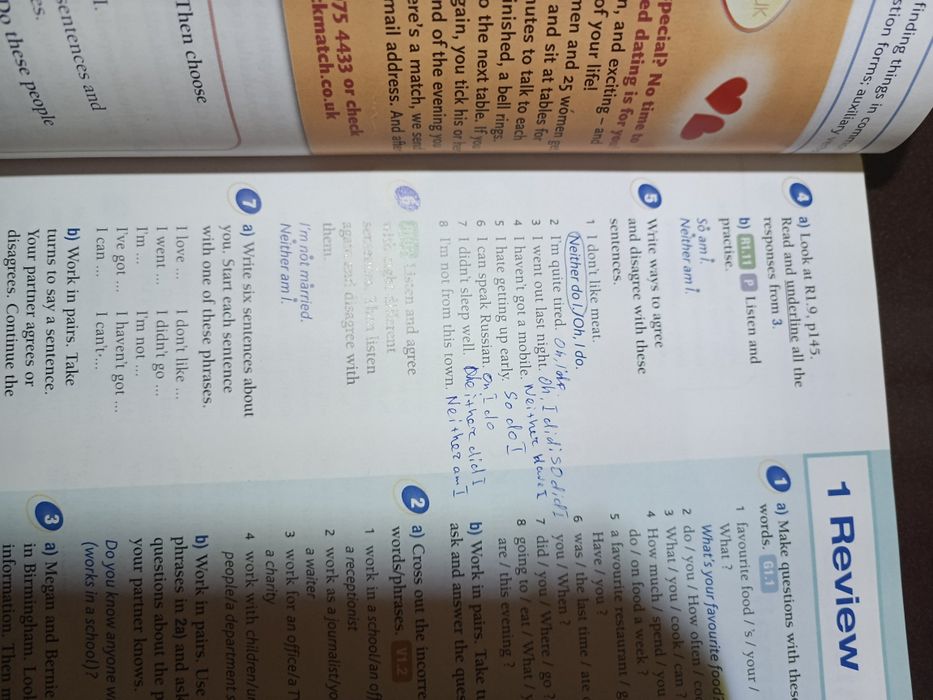 finding things in
question forms; auxiliary
special? No time to
dating is for you
n, and exciting – and
of your life!
men and 25 women
and sit at tables for
minutes to talk to each
finished, a bell rings.
to the next table. If you
again, you tick his or her
end of the evening you
there's a match, we send
email address. And after
75 4433 or check
ckmatch.co.uk
Then choose
sentences and
Do these people
4 a) Look at R1.9, p145.
Read and underline all the
responses from 3.
b) R1.11 P Listen and
practise.
So am I.
Neither am I.
5 Write ways to agree
and disagree with these
sentences.
1 I don't like meat.
Neither do I./Oh, I do.
2 I'm quite tired. Oh, I
3 I went out last night. Oh, I did; so did I
4 I haven't got a mobile. Neither have I
5 I hate getting up early. So do I
6 I can speak Russian. I do
7 I didn't sleep well. Neither did I
8 I'm not from this town. Neither am I
6 Listen and agree
with eight different
sentences. Then listen
again and disagree with
them.
I'm not married.
Neither am I.
7 a) Write six sentences about
you. Start each sentence
with one of these phrases.
I love … I don't like …
I went … I didn't go …
I'm … I'm not …
I've got … I haven't got …
I can … I can't…
b) Work in pairs. Take
turns to say a sentence.
Your partner agrees or
disagrees. Continue the
1 Review
1 a) Make questions with these
words. G1.1
1 favourite food / 's / your /
What ?
What's your favourite food?
2 do / you / How often /
3 What / you / cook / can ?
4 How much / spend / you
do / on food a week ?
5 a favourite restaurant /
Have / you ?
6 was / the last time / are
you / When ?
7 did / you / Where / go ?
8 going to / eat / What /
are / this evening ?
b) Work in pairs. Take
ask and answer the
2 a) Cross out the
words/phrases. V1.2
1 work in a school/an
a receptionist
2 work as a journalist/
a waiter
3 work for an office/a
a charity
4 work with
people/a department
b) Work in pairs. Use
phrases in 2a) and
questions about the
your partner knows.
Do you know anyone
(works in a school)?
3 a) Megan and Bernie
in Birmingham.
information. Then